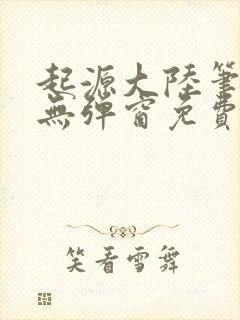 起源大陸筆
無彈窗免費
笑看雪舞